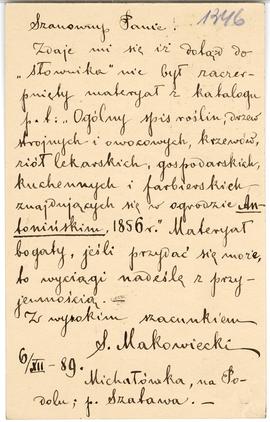 1346
Szanowny Panie!
Zdaje mi się iż dotąd do
„Słownika" nie był zaczer-
pnięty materyał z katalogu
p. t: „Ogólny spis roślin, drzew
strojnych i owocowych, krzewów,
ziół lekarskich, gospodarskich,
kuchennych i farbierskich
znajdujących się w ogrodzie An-
tonińskim, 1856 r." Materyał
bogaty, jeśli przydać się może,
to wyciągi nadeślę z przy-
jemnością. —
Z wysokim szacunkiem
S. Makowiecki
6/XII - 89.
Michałówka, na Po-
dolu; p. Szatawa. —